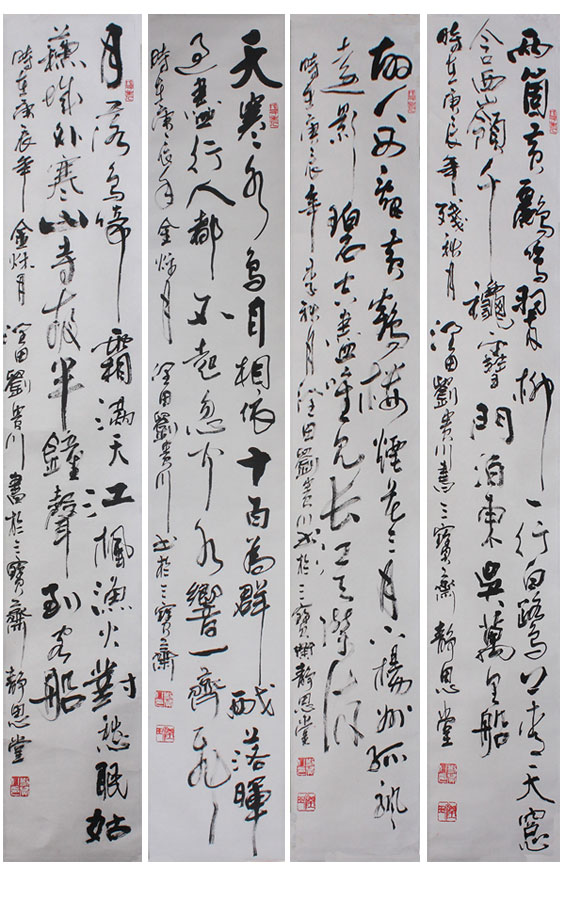 两箇黄鸝鳴翠柳一行白鷺上青天窓
含西嶺千龝雪門泊東吳萬里船
時在庚辰年殘秋月 澄田劉貴川書三寶齋 靜思堂
故人西辭黄鶴樓煙花三月下揚州孤帆
遠影碧空盡唯見長江天際流
時在庚辰年 秋月澄田劉貴川書於三寶齋靜思堂
天寒水鳥自相依十百為群戲落暉
過盡行人都不起忽聞水響一齊飛
時在庚辰年金秋月 澄田劉貴川書於三寶齋
月落烏啼霜滿天江楓漁火對愁眠姑
蘇城外寒山寺夜半鐘聲到客船
時在庚辰年金秋月 澄田劉貴川書於三寶齋 靜思堂